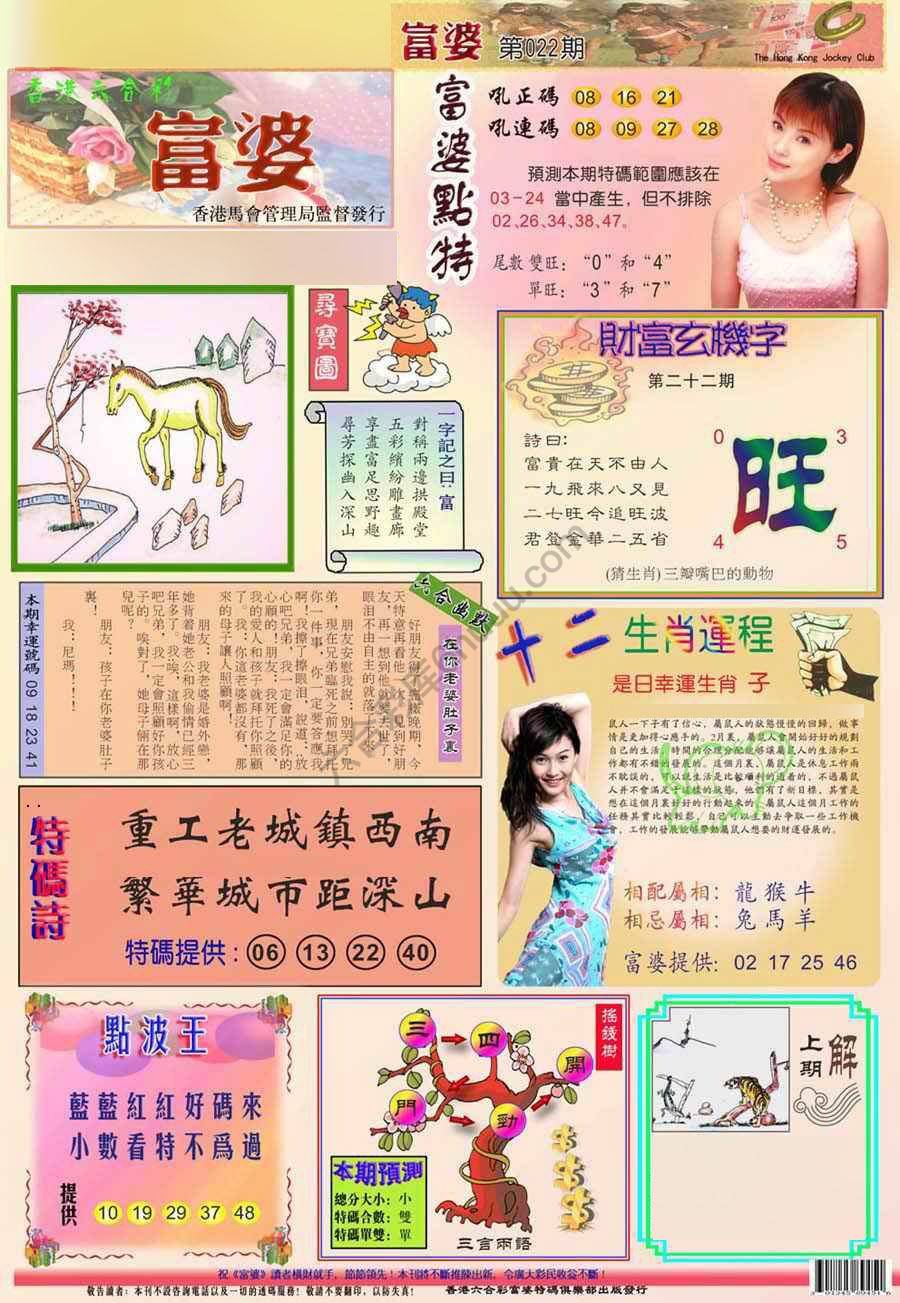 富婆 第022期
The Hong Kong Jockey Club
香港六合彩
富婆
香港馬會管理局監督發行
富婆點特
吼正碼 08 16 21
吼連碼 08 09 27 28
預測本期特碼範圍應該在
03-24 當中產生，但不排除
02、26、34、38、47。
尾數雙旺：“0”和“4”
單旺：“3”和“7”
尋寶圖
一字記之曰：富
對稱兩邊拱殿堂
五彩繽紛雕畫廊
享盡富足思野趣
尋芳探幽入深山
財富玄機字
第二十二期
詩曰：
富貴在天不由人
一九飛來八又見
二七旺今追旺波
君登金華二五省
0 3
旺
4 5
(猜生肖)三瓣嘴巴的動物
六合幽默
在你老婆肚子裏
好朋友得癌症晚期，今
天特意再看他一次，見到好朋
友，再一想到他就快去世了，
眼泪不由自主的就落下
朋友安慰我説：別哭，兄
弟，現在兄弟臨死之前想拜托
你一件事，你一定要答應我
啊！我擦了擦眼泪，説道：放
心吧兄弟，我一定會滿足你的
心願的！朋友：我死了之後，
我的愛人和孩子就拜托你照顧
了，你這個老婆都没有，
來的母子讓人照顧啊！
朋友：我老婆是婚外戀，
她背着她老公和我偷情已經三
年多了。我：唉，這樣啊，放心
吧兄弟，我一定會照顧好你孩
子的。唉對了，她母子倆在那
兒呢？
朋友：孩子在你老婆肚子
裏！
我：尼瑪！！！
本期幸運號碼 09 18 23 41
十二生肖運程
是日幸運生肖 子
鼠人一下子有了信心，屬鼠人的狀態慢慢的回歸，做事
情是更加得心應手的。2月裏，屬鼠人會開始好好的規劃
自己的生活，時間的合理分配能够讓屬鼠人的生活和工
作都有不錯的發展的。這個月裏，屬鼠人是休息工作兩
不耽誤的，可以説生活是比較順利的過着的，不過屬鼠
人并不會滿足于這樣的狀態，他們有了新目標，其實是
想在這個月裏好好的行動起來的，屬鼠人這個月工作的
任務其實比較輕鬆，自己可以主動去争取一些工作機
會，工作的發展能够帶動屬鼠人想要的財運發展的。
相配屬相：龍 猴 牛
相忌屬相：兔 馬 羊
富婆提供：02 17 25 46
特碼詩
重工老城鎮西南
繁華城市距深山
特碼提供：06 13 22 40
點波王
藍藍紅紅好碼來
小數看特不爲過
提供 10 19 29 37 48
搖錢樹
三 四 開
門 勁
本期預測
總分大小：小
特碼合數：雙
特碼單雙：單
三言兩語
上期解
祝《富婆》讀者橫財就手，節節領先！本刊將不斷推陳出新，令廣大彩民收益不斷！
敬告讀者：本刊不設咨詢電話以及一切的透碼服務！敬請不要翻印，以防失真！ 香港六合彩富婆特碼俱樂部出版發行